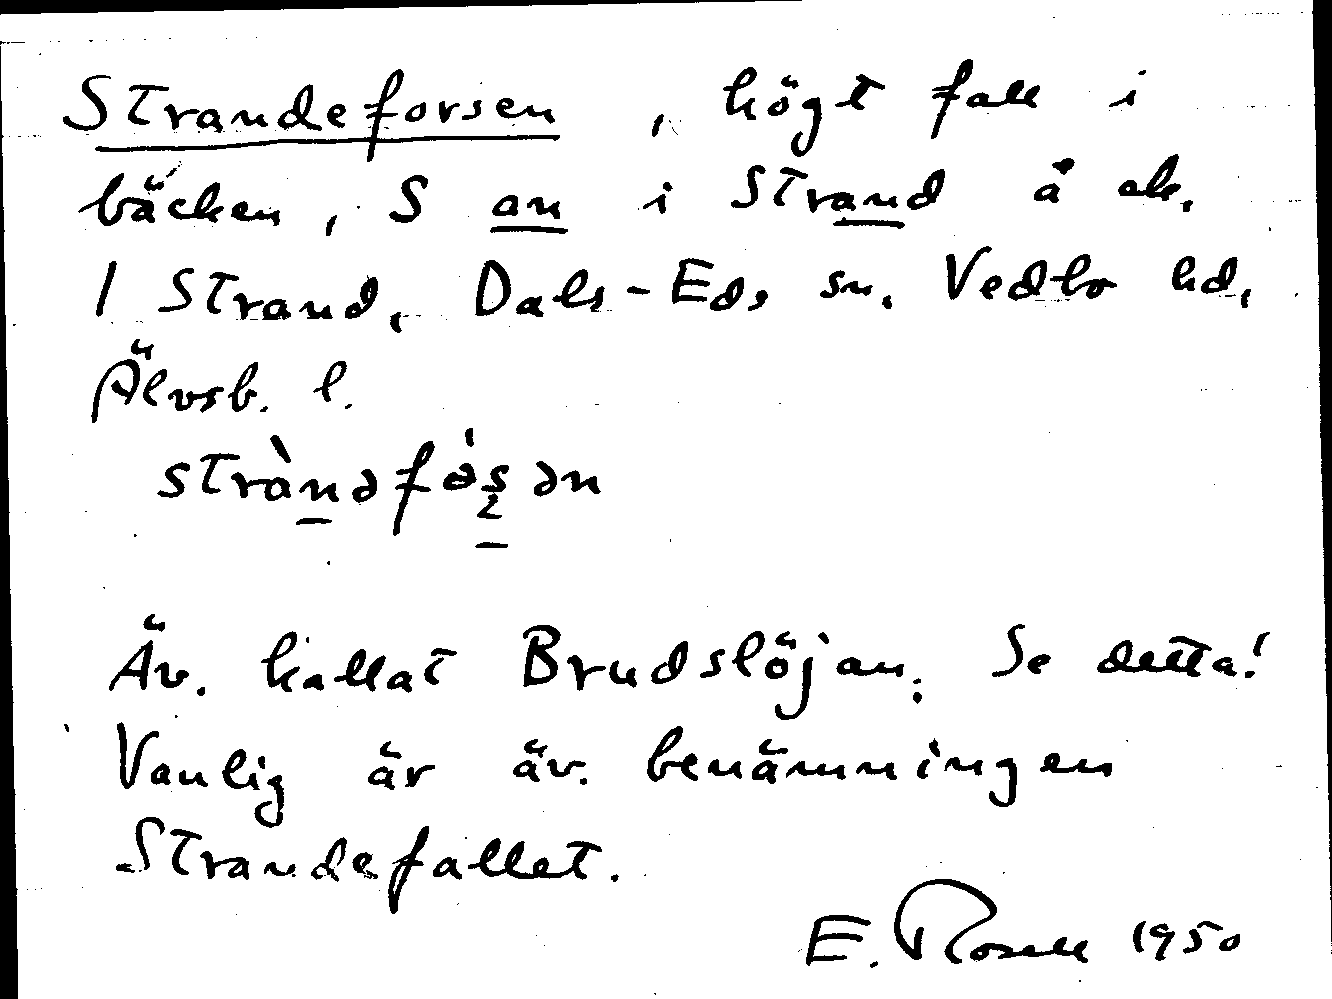 Strandeforsen, högt fall i
bäcken, S an i Strand å ek.
1 Strand, Dals-Eds sn. Vedbo hd.
Älvsb. l.
stràndəfå̀ʂən
Äv. kallat Brudslöjan. Se detta!
Vanlig är äv. benämningen
Strandefallet.
E. Rosell 1950